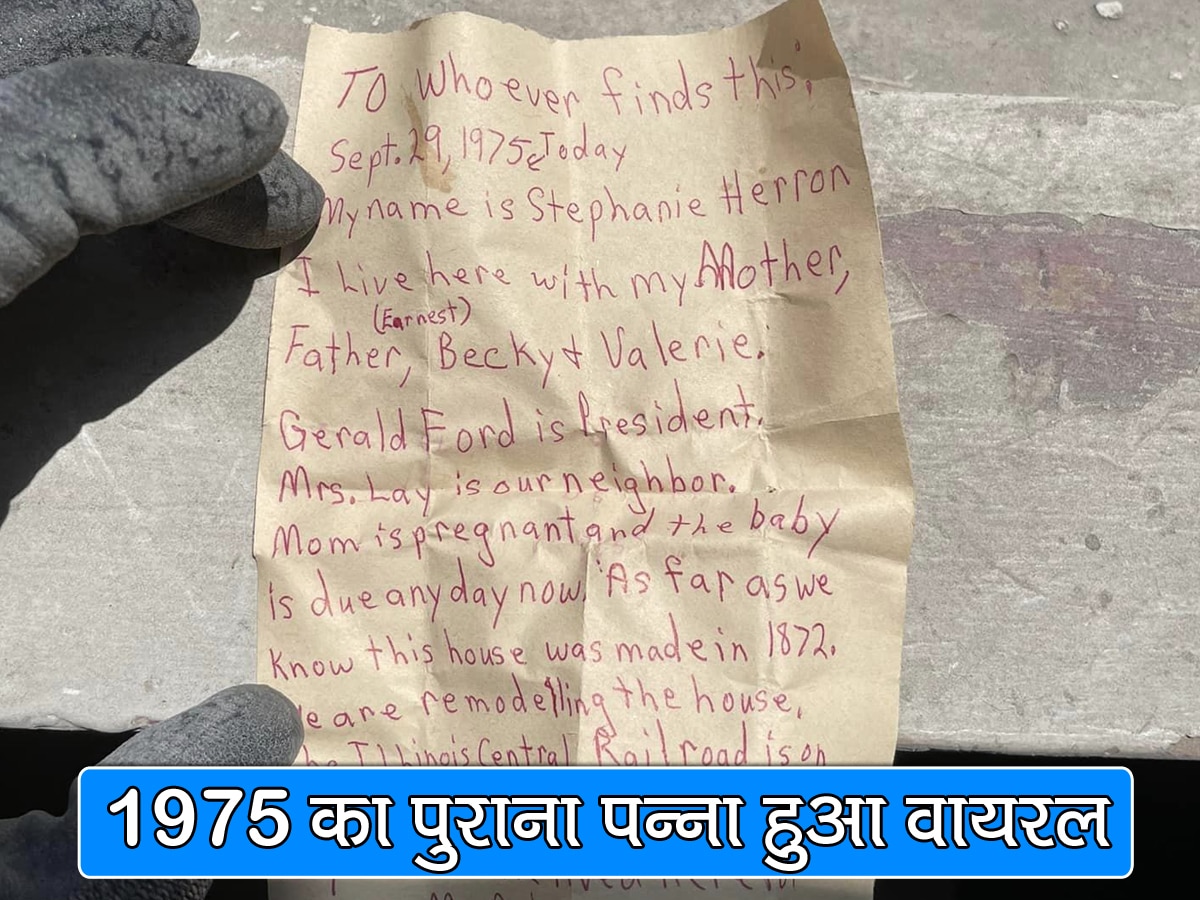 To whoever finds this,
Sept. 29, 1975 Today
My name is Stephanie Herron
I Live here with my Mother,
(Earnest)
Father, Becky & Valerie.
Gerald Ford is President.
Mrs. Lay is our neighbor.
Mom is pregnant and the baby
is due any day now. As far as we
Know this house was made in 1872.
We are remodelling the house.
The Illinois Central Railroad is on
1975 का पुराना पन्ना हुआ वायरल